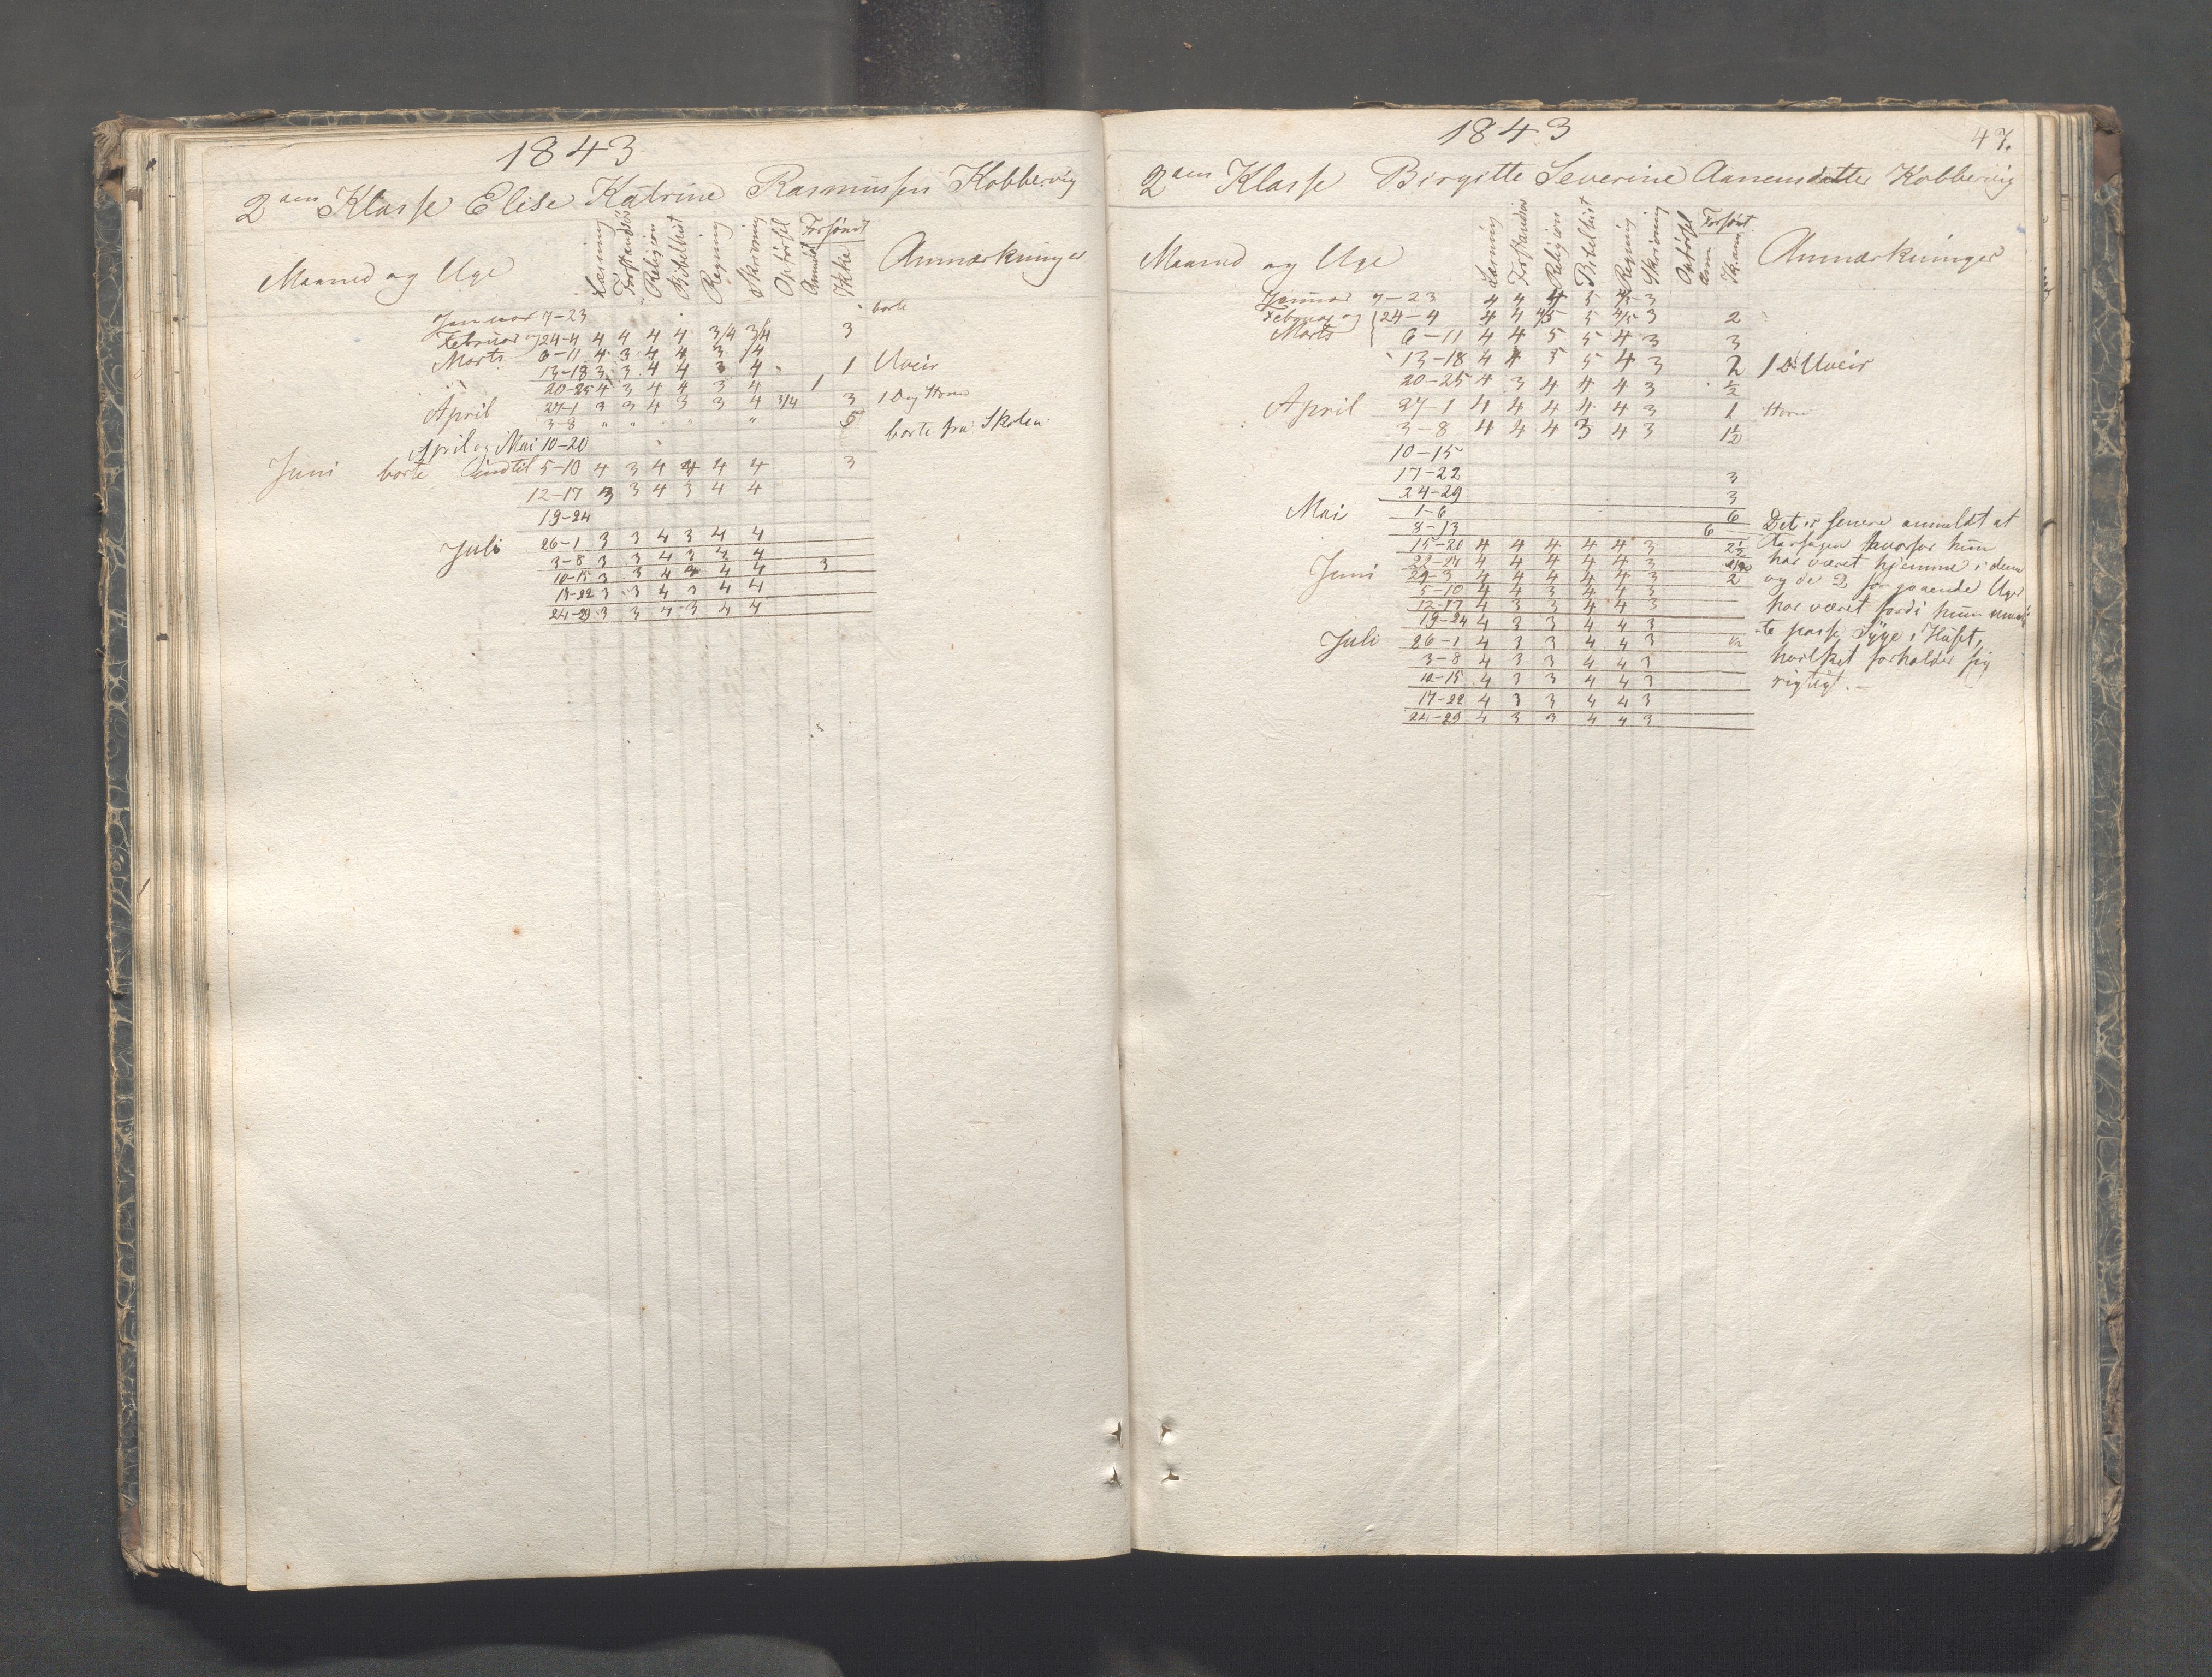 1843
2den Klasse Elise Katrine Rasmussen Kobbervig
Maaned og Uge Læsning Religion Bibelhist Regning Skrivning Opførsel Forsømt Anmeldt Ikke Anmærkninger
Januar 7-23 borte
Februar og 24-4 4 4 4 4 3/4 3/4 3
Marts 6-11 4 3 4 4 3 4
13-18 3 3 4 4 3 4 " 1 Uveir
20-25 4 3 4 4 3 4 1
April 27-1 3 3 4 3 3 4 3/4 3 1 Dag
3-8 " " " " 5
April og Mai 10-20 borte fra Skolen
Juni borte indtil 5-10 4 3 4 4 4 4 3
12-17 3 3 4 3 4 4
19-24
Juli 26-1 3 3 4 3 4 4
3-8 3 3 4 3 4 4
10-15 3 3 4 3 4 4 3
17-22 3 3 4 3 4 4
24-29 3 3 4 3 4 4
1843 47.
2den Klasse Birgitte Severine Aanensdatter Kobbervig
Maaned og Uge Læsning Religion Bibelhist Regning Skrivning Opførsel Forsømt Anm Ik.anm Anmærkninger
Januar 7-23 4 4 4 5 4/5 3
Februar og 24-4 4 4 4/5 5 4/5 3 2
Marts 6-11 4 4 5 5 4 3 3
13-18 4 4 5 5 4 3 2 1 D Uveir
20-25 4 3 4 4 4 3 1/2
April 27-1 4 4 4 4 4 3 1
3-8 4 4 4 3 4 3 1 1/2
10-15
17-22 3
24-29 3
Mai 1-6 6
8-13 6 Det er senere anmeldt at
15-20 4 4 4 4 4 3 2 1/2 Aarsagen hvorfor hun
22-27 4 4 4 4 4 3 har været hjemme i denne
Juni 29-3 4 4 4 4 4 3 2 og de 2 foregaaende Uger
5-10 4 4 3 4 4 3
12-17 4 3 3 4 4 3 har været fordi hun maat-
19-24 4 3 3 4 4 3 te passe Syge i Huset,
Juli 26-1 4 3 3 4 4 3 1/2
3-8 4 3 3 4 4 3 hvilket forholder sig
10-15 4 3 3 4 4 3 rigtigt.-
17-22 4 3 3 4 4 3
24-29 4 3 3 4 4 3